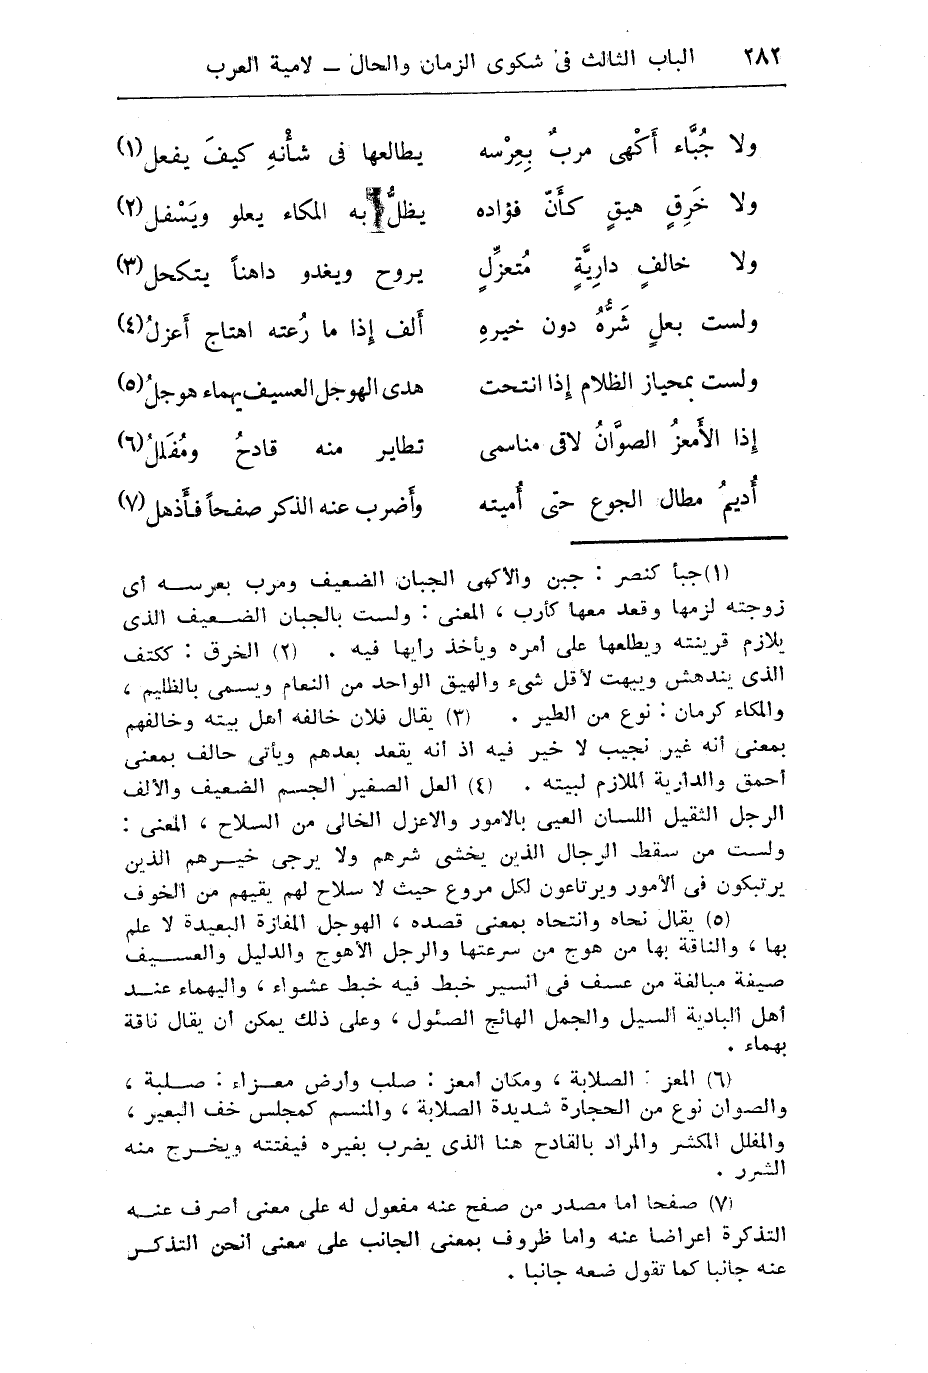 ٢٨٢ الباب الثالث فى شكوى الزمان والحال ــ لامية العرب
ولا جُبَّاء أَكْهى مربٌ بِعِرْسه يطالعها فى شأْنهِ كيفَ يفعل(١)
ولا خَرِقٍ هيقٍ كأَنّ فؤاده يظلُّ به المكاء يعلو ويَسْفل(٢)
ولا خالفٍ داريَّةٍ مُتعزِّلٍ يروح ويغدو داهناً يتكحل(٣)
ولست بعلٍ شَرُّهُ دون خيرهِ أَلف إِذا ما رُعته اهتاج أَعزلُ(٤)
ولست بمحياز الظلام إِذا انتحت هدى الهوجل العسيف يهماء هوجلُ(٥)
إِذا الأَمعزُ الصوَّانُ لاقى مناسمى تطاير منه قادحُ ومُفَللُ(٦)
أُديمُ مطال الجوع حتى أُميته وأَضرب عنه الذكر صفحاً فأَذهل(٧)
(١)جبأ كنصر : جبن والأكهى الجبان الضعيف ومرب بعرسـه أى
زوجته لزمها وقعد معها كأرب ، المعنى : ولست بالجبان الضـعيف الذى
يلازم قرينته ويطلعها على أمره ويأخذ رأيها فيه . (٢) الخرق : ككتف
الذى يندهش ويبهت لأقل شىء والهيق الواحد من النعام ويسمى بالظليم ،
والمكاء كرمان : نوع من الطير . (٣) يقال فلان خالفه أهل بيته وخالفهم
بمعنى أنه غير نجيب لا خير فيه اذ أنه يقعد بعدهم ويأتى حالف بمعنى
أحمق والدارية الملازم لبيته . (٤) العل الصغير الجسم الضعيف والألف
الرجل الثقيل اللسان العيى بالامور والاعزل الخالى من السلاح ، المعنى :
ولست من سقط الرجال الذين يخشى شرهم ولا يرجى خيـرهم الذين
يرتبكون فى الأمور ويرتاعون لكل مروع حيث لا سلاح لهم يقيهم من الخوف
(٥) يقال نحاه وانتحاه بمعنى قصده ، الهوجل المفازة البعيدة لا علم
بها ، والناقة بها من هوج من سرعتها والرجل الأهوج والدليل والعسـيف
صيغة مبالغة من عسف فى السير خبط فيه خبط عشواء ، واليهماء عنـد
أهل البادية السيل والجمل الهائج الصئول ، وعلى ذلك يمكن أن يقال ناقة
يهماء .
(٦) المعز : الصلابة ، ومكان أمعز : صلب وأرض معـزاء : صـلبة ،
والصوان نوع من الحجارة شديدة الصلابة ، والمنسم كمجلس خف البعير ،
والمفلل المكسر والمراد بالقادح هنا الذى يضرب بغيره فيفتته ويخـرج منه
الشرر .
(٧) صفحا اما مصدر من صفح عنه مفعول له على معنى أصرف عنـه
التذكرة اعراضا عنه واما ظروف بمعنى الجانب على معنى أنحن التذكـر
عنه جانبا كما تقول ضعه جانبا .